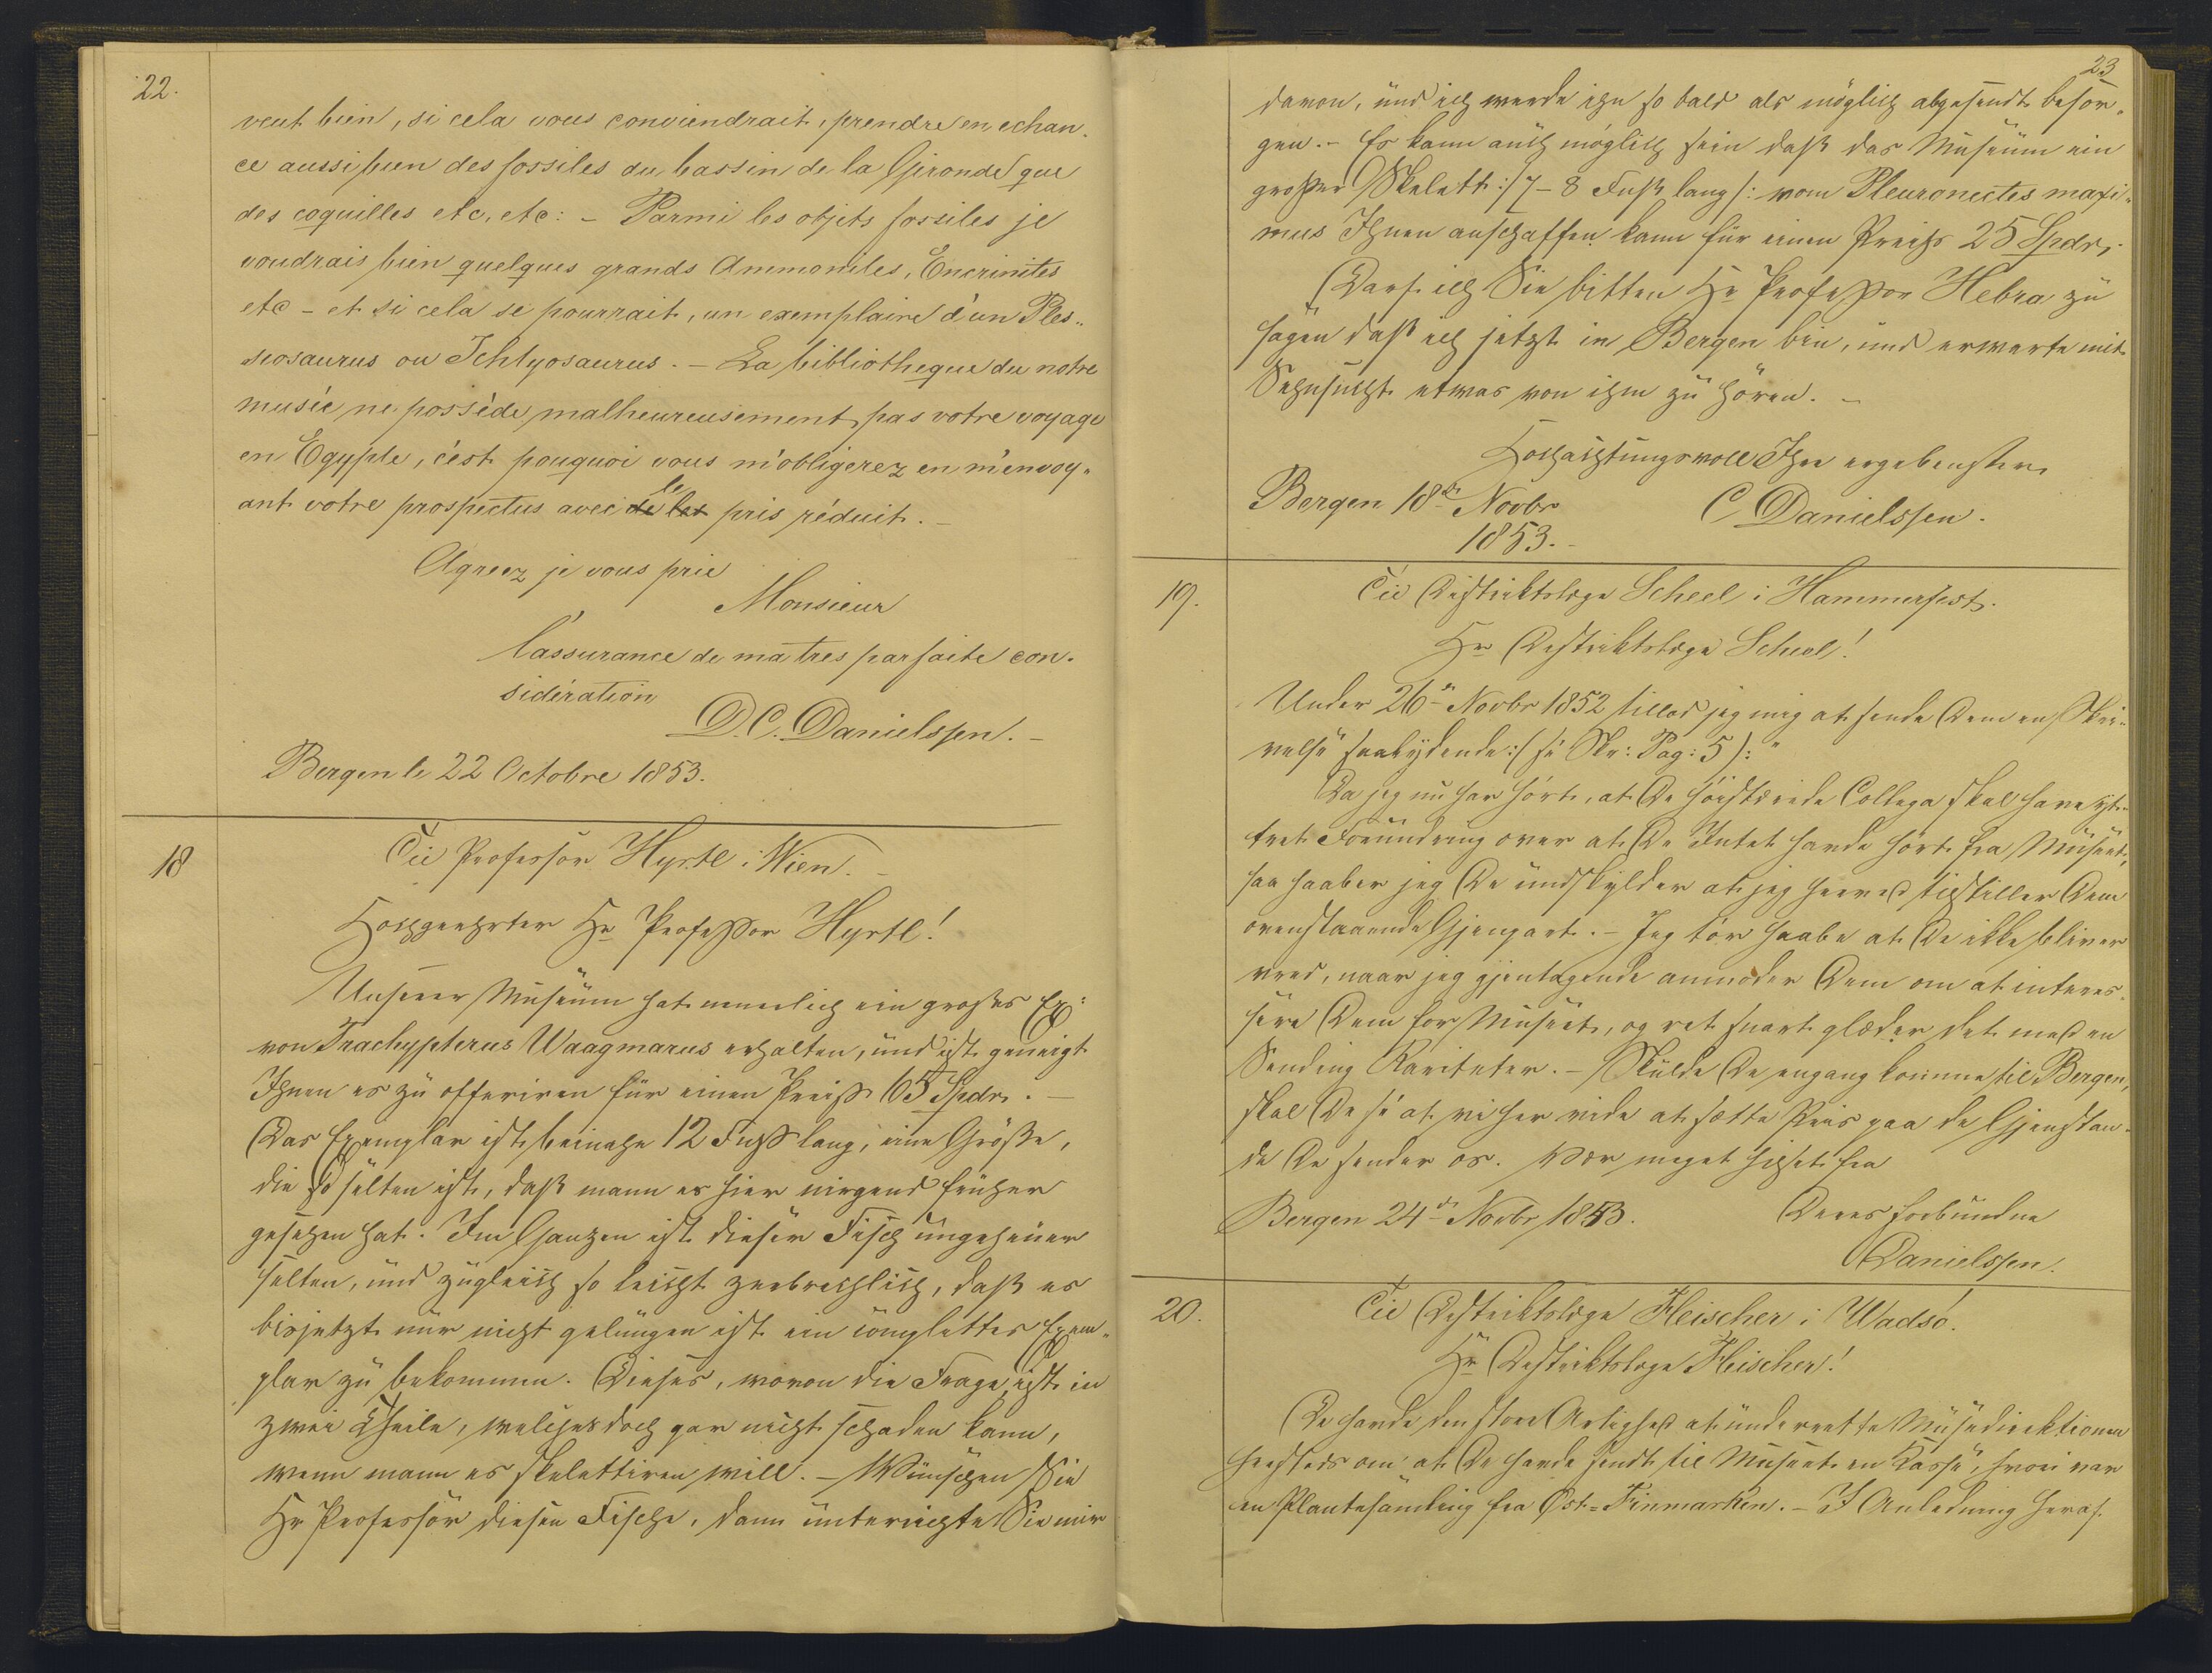 22.
veut bien, si cela vous conviendrait, prendre en echan-
ce aussi bien des fossiles du bassin de la Gironde que
des coquilles etc, etc: - Parmi les objets fossiles je
voudrais bien quelques grands Ammonites, Encrinites
etc - et si cela se pourrait, un exemplaire d'un Ples-
seosaurus ou Ichtyosaurus. - La bibliotheque du notre
musée ne possède malheureusement pas votre voyage
en Egypte, c'est pouquoi vous m'obligerez en m'envoy-
ant votre prospectus avec de les le pris réduit. -
Agreez je vous prie
Monsieur
l'assurance de ma tres parfaite con-
sidération
D. C. Danielssen. -
Bergen le 22 Octobre 1853.
18
Til Professor Hyrtl i Wien. -
Hochgeehrter Hr Professor Hyrtl!
Unserer Museum hat neuerlich ein großes Ex:
von Trachypterus Waagmarus erhalten, und ist geneigt
Ihnen es zu offeriren für einen Preiss 65 Spdr. -
Das Exemplar ist beinahe 12 Fuss lang, eine Größe,
die so selten ist, daß mann es hier nirgend früher
gesehen hat. Im Ganzen ist dieser Fisch ungeheuer
selten, und zugleich so leicht zerbrechlich, daß es
bisjetzt nur nicht gelungen ist ein complettes Exem-
plar zu bekommen. Dieses, wovon die Frage, ist in
zwei Theile, welches doch gar nicht schaden kann,
wenn mann es skelettiren will. - Wünschen Sie
Hr Professor diesen Fische, dann unterrichte Sie mir
23
davon, und ich werde ihn so bald als möglich abgesendt besor-
gen. - Es kann auch möglich sein daß das Museum ein
großes Skelett :/ 7-8 Fuß lang /: vom Pleuronectes maxi-
mus Ihnen anschaffen kann für einen Preihs 25 Spdr.
Darf ich Sie bitten Hr Professor Hebra zu
sagen daß ich jetzt in Bergen bin, und erwarte mit
Sehnsucht etwas von ihm zu hören. -
Hochachtungsvoll Ihre ergebenster
Bergen 18de Novbr
C Danielssen.
1853. -
19.
Til Distriktslæge Scheel i Hammerfest.
Hr Distriktslæge Scheel!
Under 26de Novbr 1852 tillod jeg mig at sende Dem en Skri-
velse saalydende :/ se Skr: Pag: 5 /: "
Da jeg nu har hört, at De höistærede Collega skal have yt-
tret Forundring over at De Intet havde hört fra Museet,
saa haaber jeg De undskylder at jeg herved tilstiller Dem
ovenstaaende Gjenpart. - Jeg tör haabe at De ikke bliver
vred, naar jeg gjentagende anmoder Dem om at interes-
sere Dem for Museet, og ret snart glæder det med en
Sending Rariteter. - Skulde De engang komme til Bergen,
skal De se at vi her vide at sætte Priis paa de Gjenstan-
de De sender os. Vær meget hilset fra
Bergen 24de Novbr 1853.
Deres forbundne
Danielssen.
20.
Til Distriktslæge Fleischer i Wadsö.
Hr Distriktslæge Fleischer!
De havde den store Artighed at underrette Musedirektionen
hersteds om at De havde sendt til Museet en Kasse, hvori var
en Plantesamling fra Öst-Finmarken. - I Anledning heraf